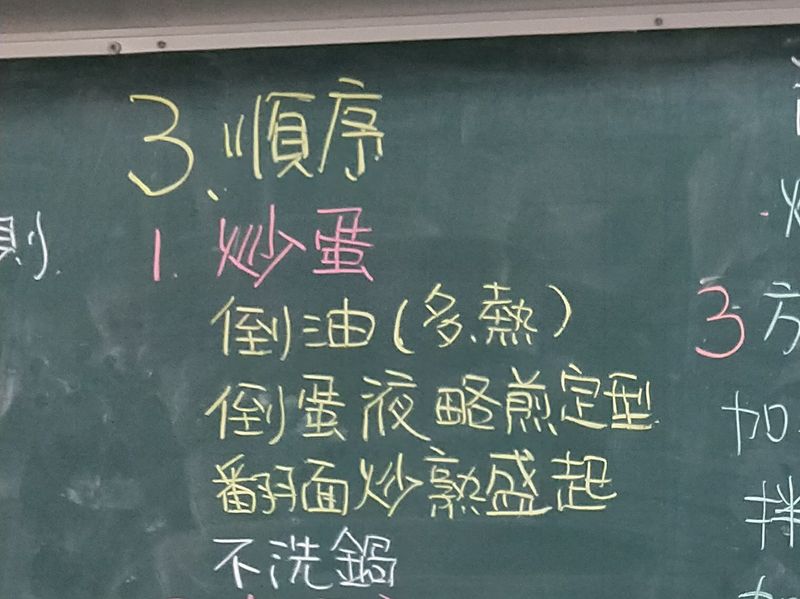 3、順序
1. 炒蛋
倒油(多、熱)
倒蛋液略煎定型
翻面炒熟盛起
不洗鍋
則.
3 方
加
拌